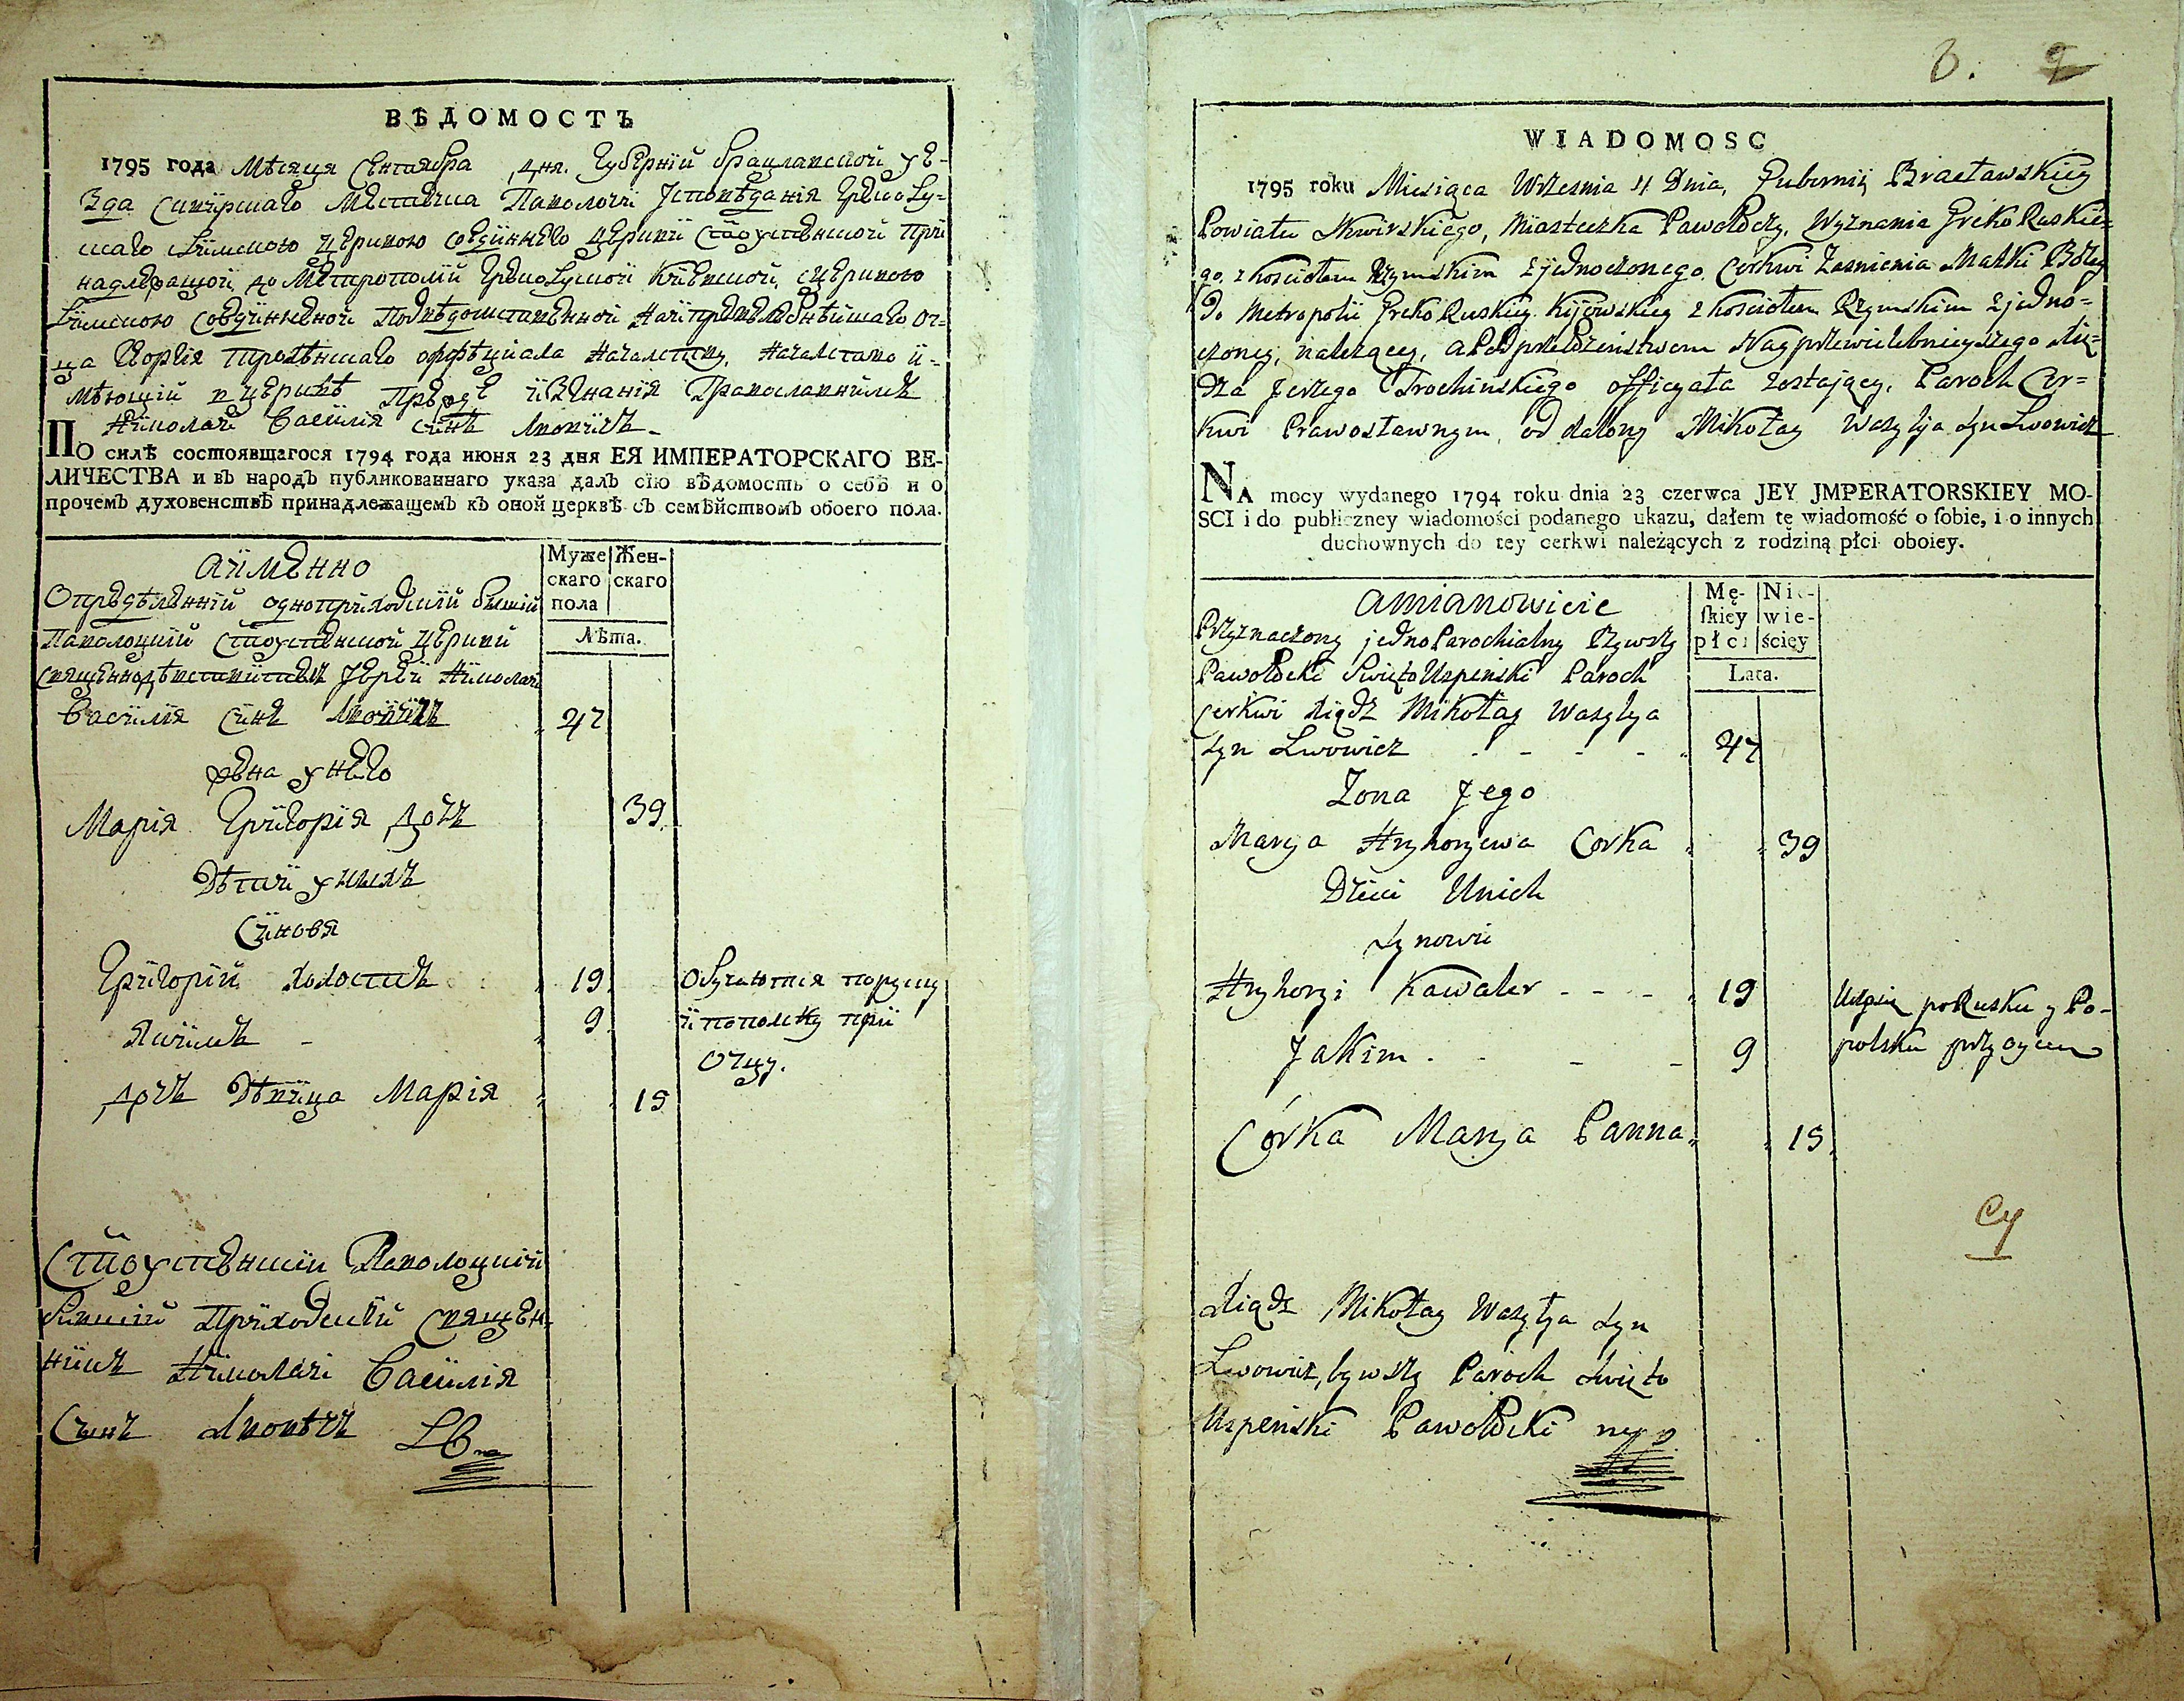 ВѢДОМОСТЪ
1795 года Мѣсяця Сентября дня. Губернїи Брацлавской уе-
зда Сквирскаго Местечка Паволочи Исповѣданія Греко Ру-
скаго Римскою церквою соединнего церкви Стоуспенской при
надлежащой до Метрополїи Грекоруской Киевской, сцерквою
Римскою соединненой Подвѣдомственной Найпревелебнѣйшаго от-
ца Троѣнскаго оффѣциала
мѣющїй в церквѣ Прежде Православнимъ
Николай Василія синъ Лвовичъ
По силѣ состоявшагося 1794 года июня 23 дня ЕЯ ИМПЕРАТОРСКАГО ВЕ-
ЛИЧЕСТВА и въ народъ публикованнаго указа далъ сїю вѣдомость о себѣ и о
прочемъ духовенствѣ принадлежащемъ къ оной церквѣ съ семѣйствомъ обоего пола.
Аименно
Муже Жен-
скаго скаго
пола
Лѣта.
Опредѣленнїй одноприходскїй бывшїй
Паволоцкїй Стоуспенской церкви
Священнодѣйствитель Иерей Николай
Василїя синъ Лвовичъ 47
жена у него
Марія Григорія дочь 39
Дѣти у нихъ
Синовя
Григорїй холостъ 19 Обучаются поруску
Якимъ - 9 и полску при
отцу.
дочъ Дѣвица Марія 15
Стоуспенскїи Паволоцкїй
бывшїй Приходскїй Священ-
никъ Николай Василія
Сынъ Лвовѣчъ
3. 9
WIADOMOSC
1795 roku Miesiąca Września 4 Dnia, Gubernij Bracławskiey
Powiatu Skwirskiego, Miasteczka Pawołoczy, Wyznania Greko Ruskie=
go, z Kosciołem Rzymskim zjednoczonego, Cerkwi Zasnienia Matki Bozey
Do Metropolii Greko Ruskiey Kijowskiey z Kosciołem Rzymskim zjedno=
czoney, nalezącey, a Pod przełozenstwem Nayprzewielebnieyszego Xię=
dza Jerzego Trochinskiego officyała zostający, Paroch Cer=
kwi Prawosławnym, oddalony Mikołay Wasyla syn Lwowicz
NA mocy wydanego 1794 roku dnia 23 czerwca JEY JMPERATORSKIEY MO-
SCI i do publiczney wiadomości podanego ukazu, dałem tę wiadomość o ſobie, i o innych
duchownych do tey cerkwi należących z rodziną płci oboiey.
Amianowicie
Mę- Nie-
ſkiey wie-
płci ściey
Lata.
Przeznaczony jedno Parochialny Bywszy
Pawołocki Swięto Uspenski Paroch
Cerkwi Xiądz Mikołay Wasylya
Syn Lwowicz - - - - 47
Zona Jego
Marya Hryhoryewa Corka 39
Dzieci Unich
Synowie
Hryhory Kawaler - - - 19 Uczą się poRusku y Po-
Jakim - - - 9 polsku przy oycu
Córka Marya Panna 15
Xiądz Mikołay Wasylya Syn
Lwowicz, bywszy Paroch Swięto
Uspenski Pawołocki mp